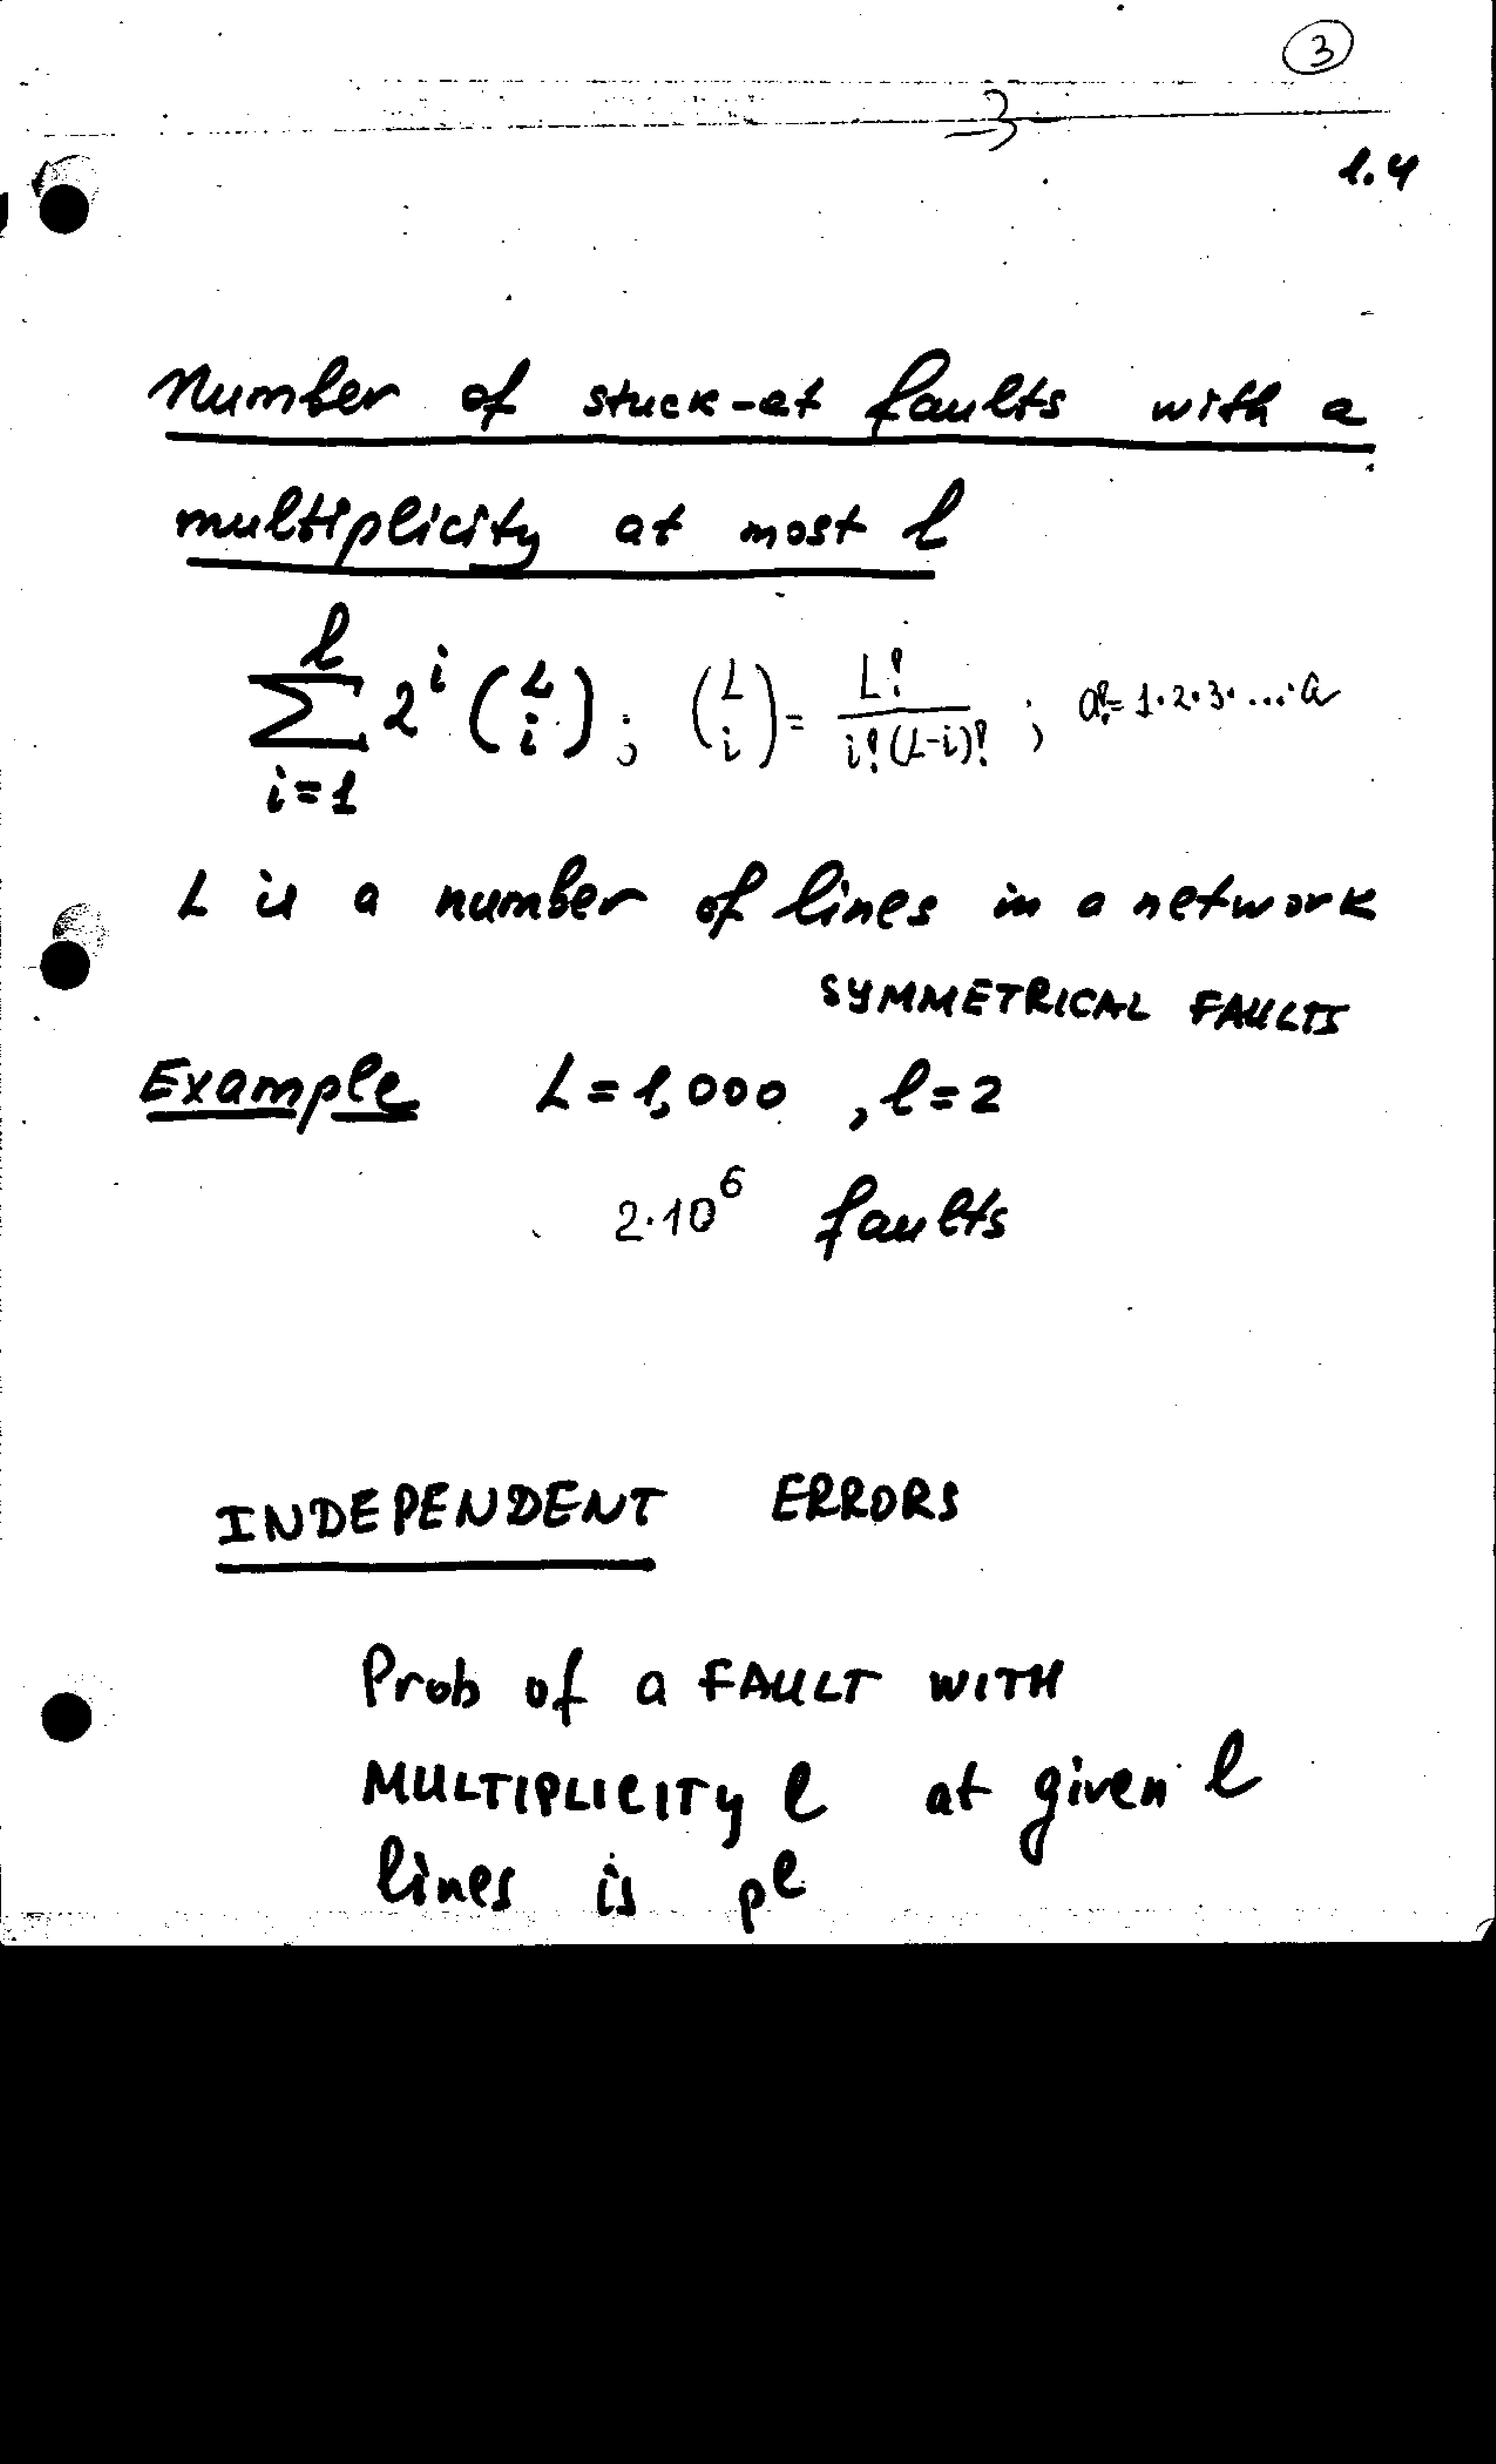 3
3
1.4
Number of stuck-at faults with a
multiplicity at most l
l
∑ 2^i (L i) ; (L i) = L! / i!(L-i)! ; a! = 1·2·3·...·a
i=1
L is a number of lines in a network
SYMMETRICAL FAULTS
Example L = 1,000 , l = 2
2·10^6 faults
INDEPENDENT ERRORS
Prob of a FAULT WITH
MULTIPLICITY l at given l
lines is p^l